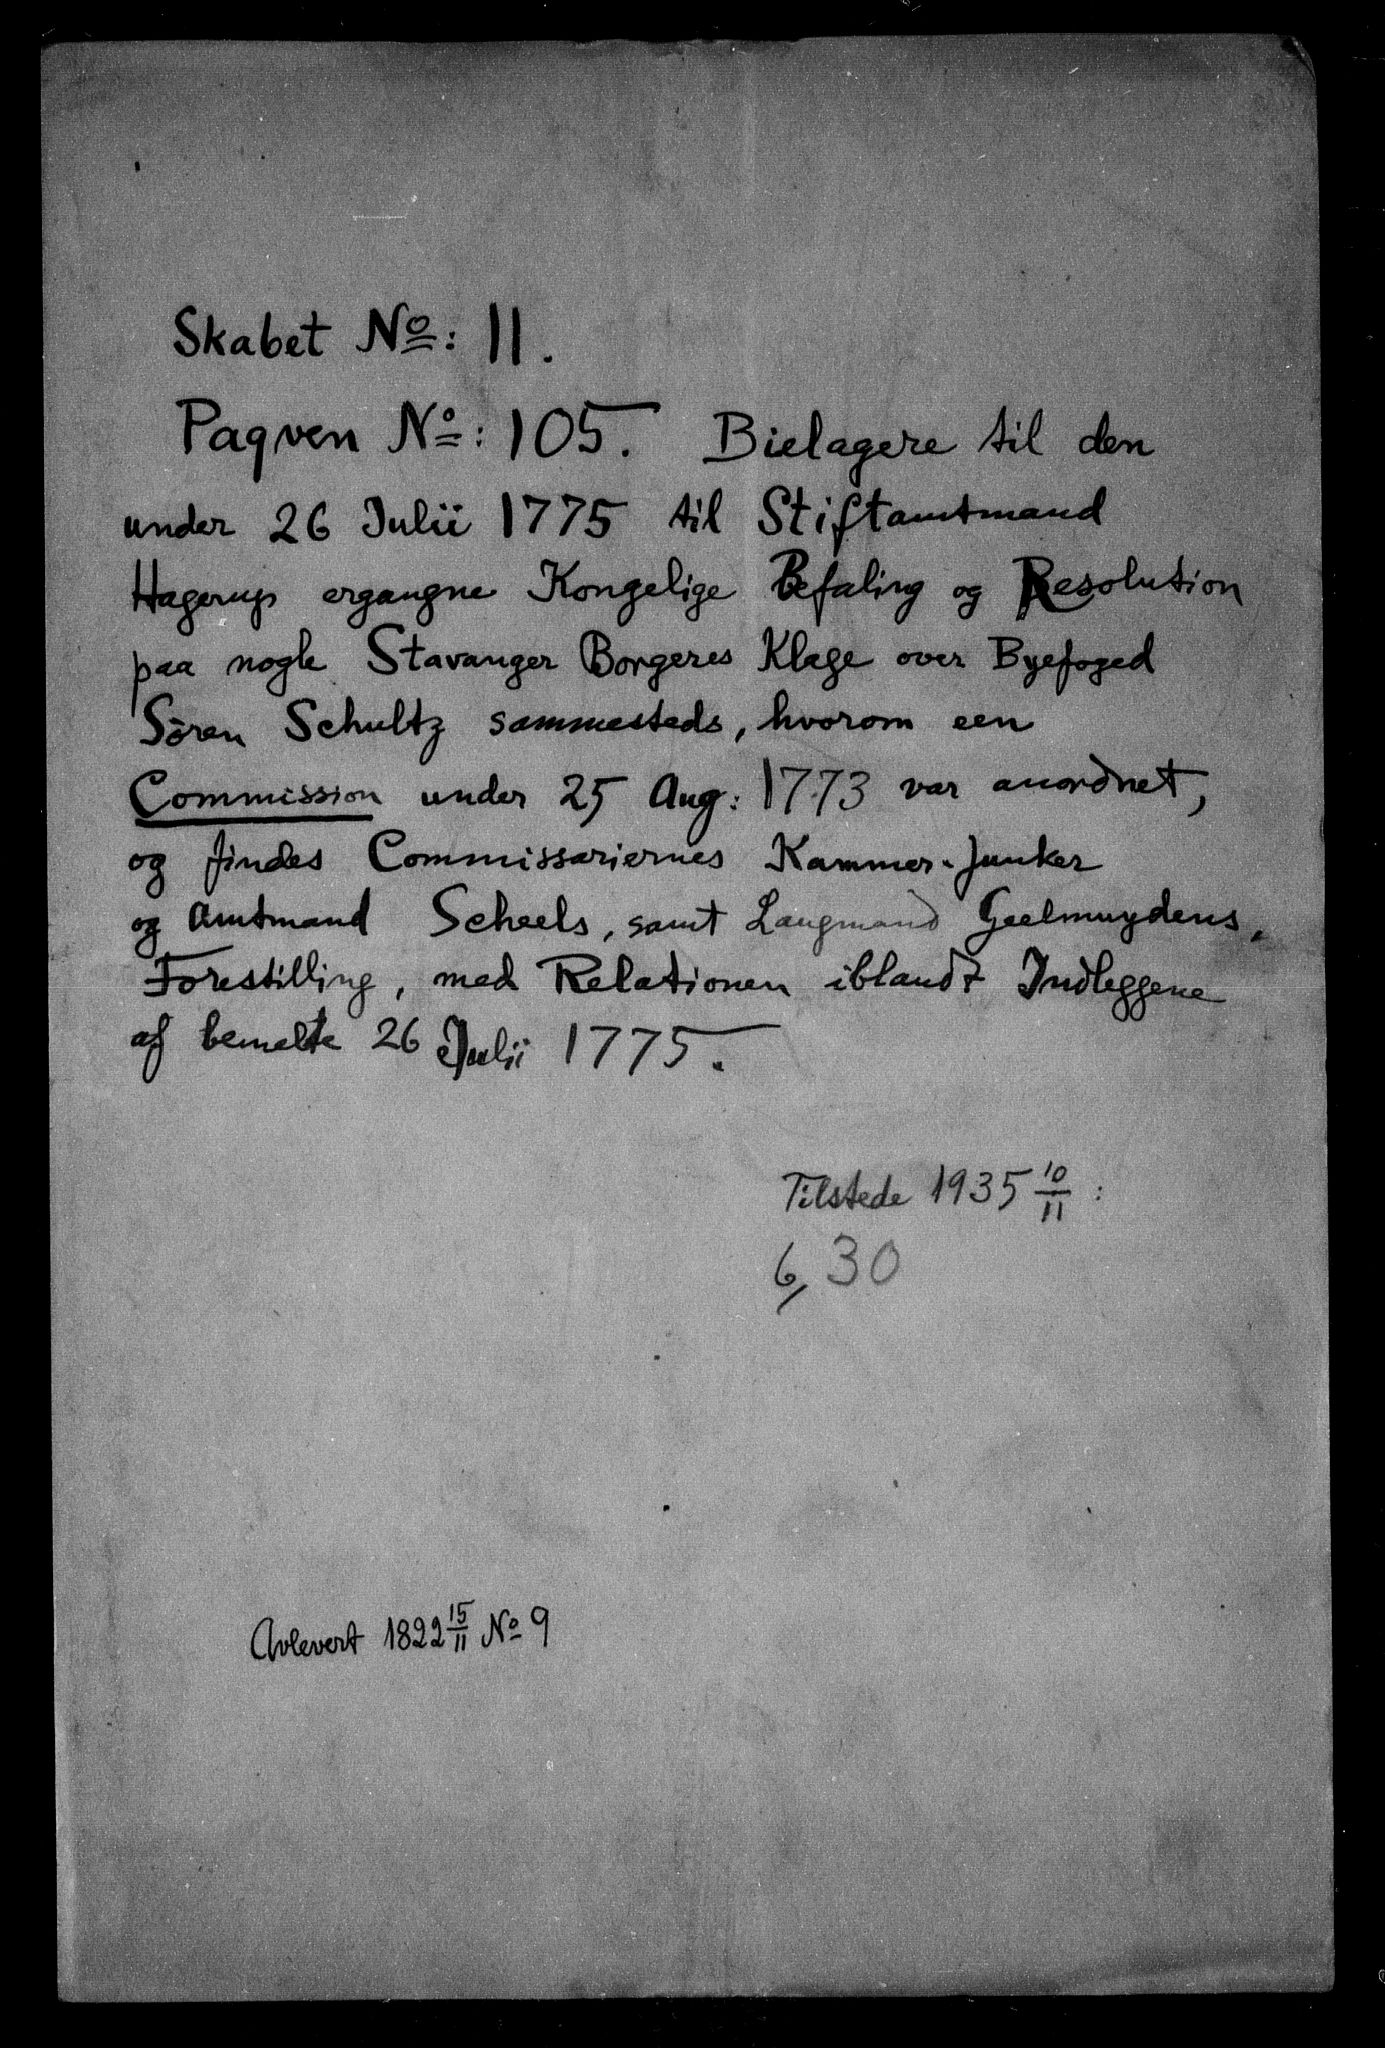 Skabet No: 11.
Paqven No: 105. Bielagere til den
under 26 Julii 1775 til Stiftamtmand
Hagerup ergangne Kongelige Befaling og Resolution
paa nogle Stavanger Borgeres Klage over Byefoged
Sören Schultz sammesteds, hvorom een
Commission under 25 Aug: 1773 var anordnet,
og findes Commissariernes Kammer-Junker
og Amtmand Scheels, samt Laugmand Geelmuydens,
Forestilling, med Relationen iblandt Indleggene
af bemelte 26 Julii 1775.
Tilstede 1935 10/11:
6, 30
Avlevert 1822 15/11 No 9